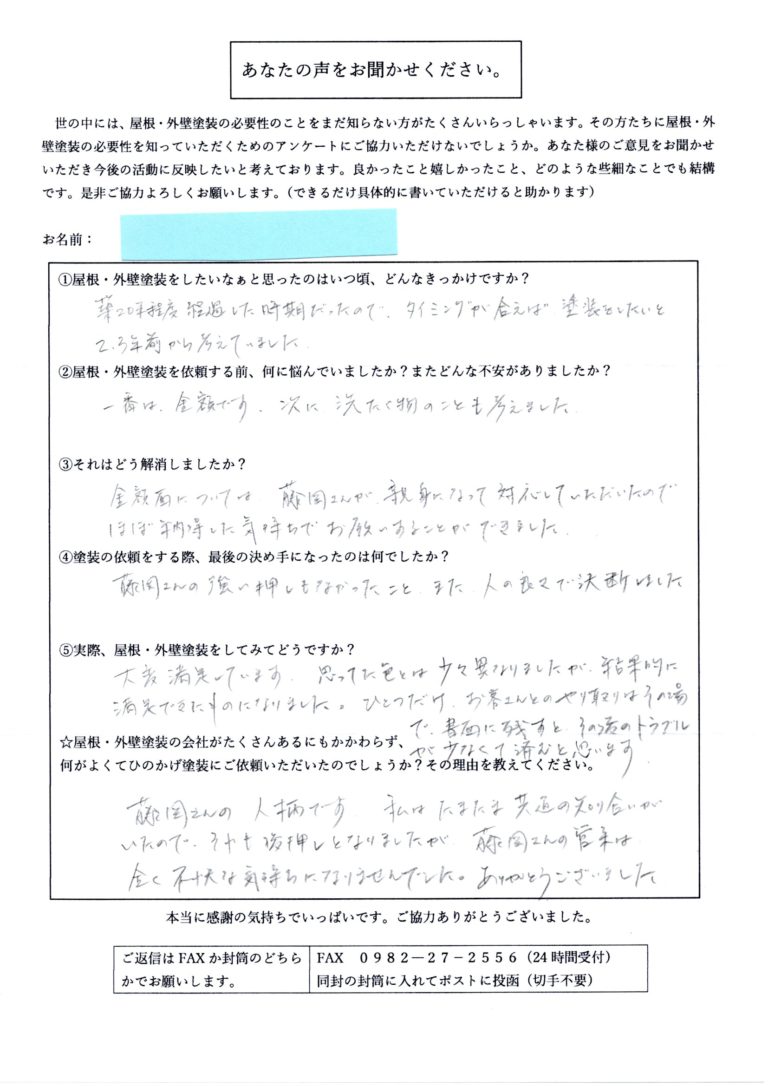 あなたの声をお聞かせください。
世の中には、屋根・外壁塗装の必要性のことをまだ知らない方がたくさんいらっしゃいます。その方たちに屋根・外
壁塗装の必要性を知っていただくためのアンケートにご協力いただけないでしょうか。あなた様のご意見をお聞かせ
いただき今後の活動に反映したいと考えております。良かったこと嬉しかったこと、どのような些細なことでも結構
です。是非ご協力よろしくお願いします。（できるだけ具体的に書いていただけると助かります）
お名前：
①屋根・外壁塗装をしたいなぁと思ったのはいつ頃、どんなきっかけですか？
築20年程度経過した時期だったので、タイミングが合えば塗装をしたいと
2.3年前から考えていました。
②屋根・外壁塗装を依頼する前、何に悩んでいましたか？またどんな不安がありましたか？
一番は、金額です。次に、洗たく物のことも考えました。
③それはどう解消しましたか？
金額面については、藤岡さんが、親身になって対応していただいたので
ほぼ納得した気持ちでお願いすることができました。
④塗装の依頼をする際、最後の決め手になったのは何でしたか？
藤岡さんの強い押しもなかったこと、また、人の良さで決断しました
⑤実際、屋根・外壁塗装をしてみてどうですか？
大変満足しています。思ってた色とは少々異なりましたが、結果的に
満足できたものになりました。ひとつだけ、お客さんとのやり取りはその場
で、書面に残すと、その後のトラブル
が少なくて済むと思います。
☆屋根・外壁塗装の会社がたくさんあるにもかかわらず、
何がよくてひのかげ塗装にご依頼いただいたのでしょうか？その理由を教えてください。
藤岡さんの人柄です。私はたまたま共通の知り合いが
いたので、それも後押しとなりましたが、藤岡さんの営業は、
全く不快な気持ちになりませんでした。ありがとうございました
本当に感謝の気持ちでいっぱいです。ご協力ありがとうございました。
ご返信はFAXか封筒のどちら
かでお願いします。
FAX　０９８２－２７－２５５６（24時間受付）
同封の封筒に入れてポストに投函（切手不要）